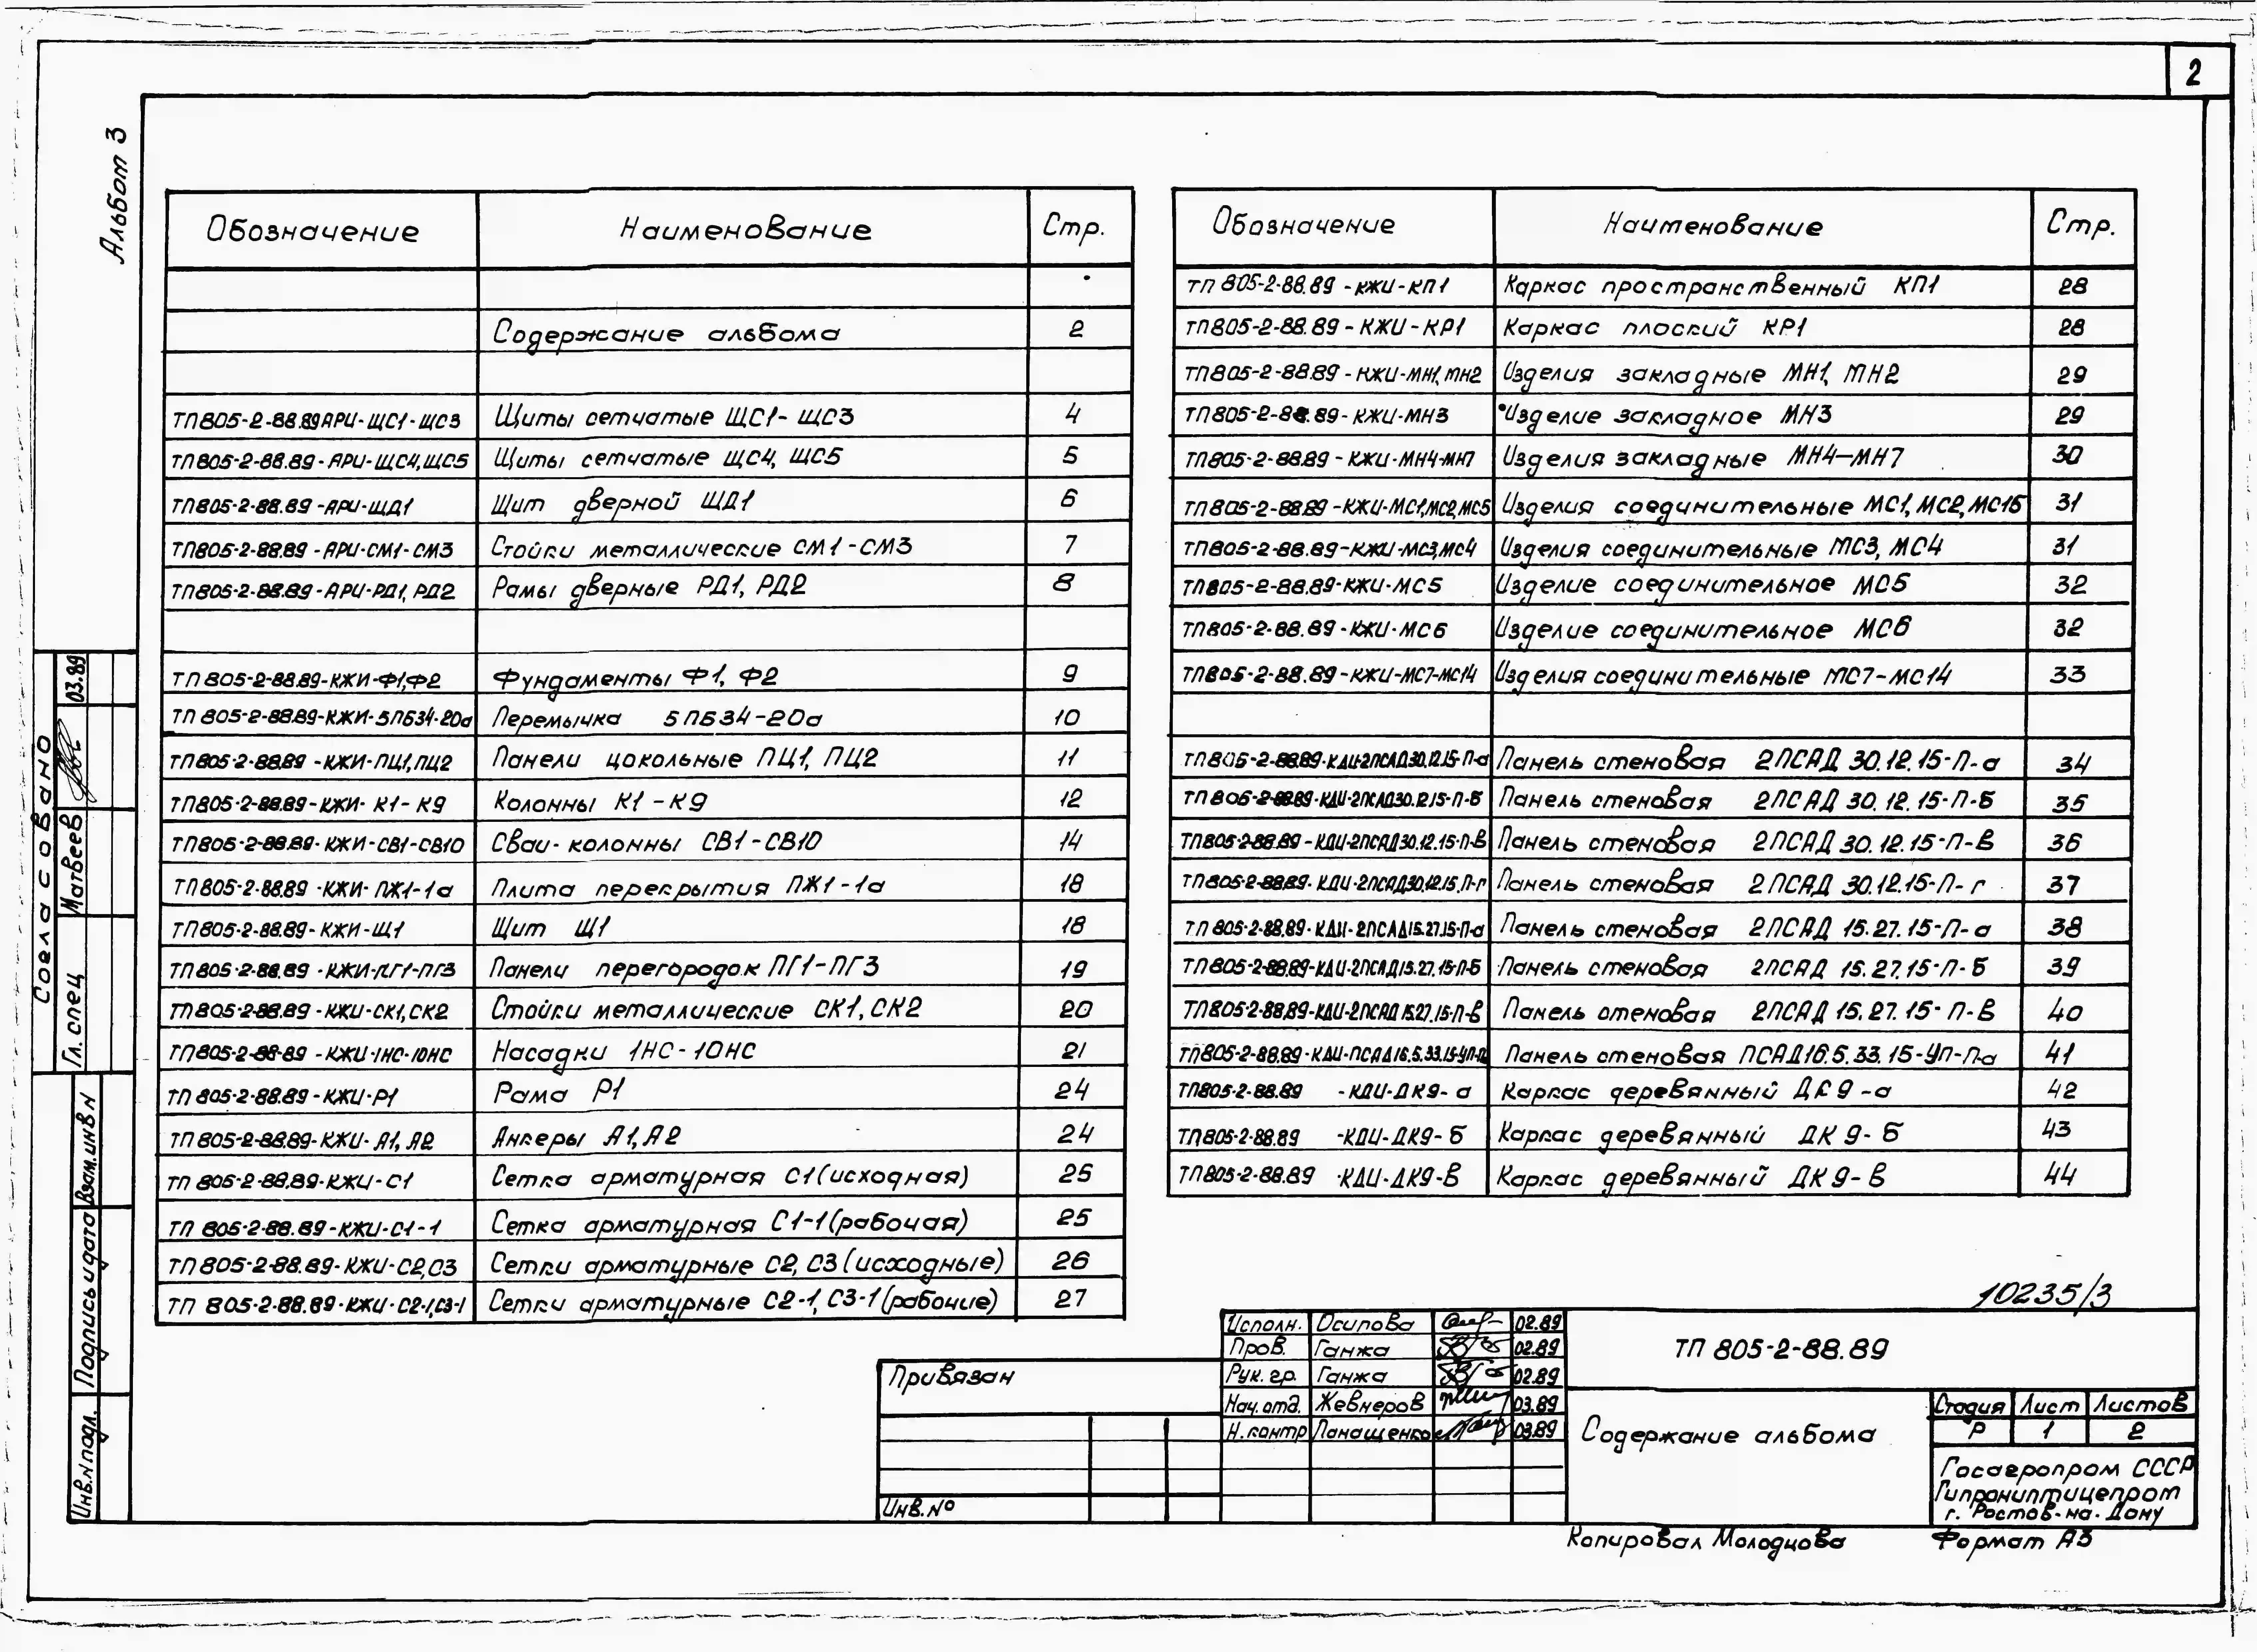 2
Альбом 3
Обозначение Наименование Стр.
Содержание альбома 2
ТП805-2-88.89АРИ-ЩС1-ЩС3 Щиты сетчатые ЩС1-ЩС3 4
ТП805-2-88.89-АРИ-ЩС4,ЩС5 Щиты сетчатые ЩС4, ЩС5 5
ТП805-2-88.89-АРИ-ЩД1 Щит дверной ЩД1 6
ТП805-2-88.89-АРИ-СМ1-СМ3 Стойки металлические СМ1-СМ3 7
ТП805-2-88.89-АРИ-РД1, РД2 Рамы дверные РД1, РД2 8
ТП805-2-88.89-КЖИ-Ф1,Ф2 Фундаменты Ф1, Ф2 9
ТП 805-2-88.89-КЖИ-5ПБ34-20а Перемычка 5ПБ34-20а 10
ТП805-2-88.89-КЖИ-ПЦ1,ПЦ2 Панели цокольные ПЦ1, ПЦ2 11
ТП805-2-88.89-КЖИ-К1-К9 Колонны К1-К9 12
ТП805-2-88.89-КЖИ-СВ1-СВ10 Сваи-колонны СВ1-СВ10 14
ТП805-2-88.89-КЖИ-ПЖ1-1а Плита перекрытия ПЖ1-1а 18
ТП805-2-88.89-КЖИ-Щ1 Щит Щ1 18
ТП805-2-88.89-КЖИ-ПГ1-ПГ3 Панели перегородок ПГ1-ПГ3 19
ТП805-2-88.89-КЖИ-СК1,СК2 Стойки металлические СК1, СК2 20
ТП805-2-88-89-КЖИ-1НС-10НС Насадки 1НС-10НС 21
ТП 805-2-88.89-КЖИ-Р1 Рама Р1 24
ТП 805-2-88.89-КЖИ-А1, А2 Анкеры А1, А2 24
ТП 805-2-88.89-КЖИ-С1 Сетка арматурная С1(исходная) 25
ТП 805-2-88.89-КЖИ-С1-1 Сетка арматурная С1-1(рабочая) 25
ТП805-2-88.89-КЖИ-С2,С3 Сетки арматурные С2, С3(исходные) 26
ТП 805-2-88.89-КЖИ-С2-1,С3-1 Сетки арматурные С2-1, С3-1(рабочие) 27
Обозначение Наименование Стр.
ТП 805-2-88.89-КЖИ-КП1 Каркас пространственный КП1 28
ТП805-2-88.89-КЖИ-КР1 Каркас плоский КР1 28
ТП805-2-88.89-КЖИ-МН1, МН2 Изделия закладные МН1, МН2 29
ТП805-2-88.89-КЖИ-МН3 Изделие закладное МН3 29
ТП805-2-88.89-КЖИ-МН4-МН7 Изделия закладные МН4-МН7 30
ТП805-2-88.89-КЖИ-МС1,МС2,МС5 Изделия соединительные МС1, МС2, МС15 31
ТП805-2-88.89-КЖИ-МС3,МС4 Изделия соединительные МС3, МС4 31
ТП805-2-88.89-КЖИ-МС5 Изделие соединительное МС5 32
ТП805-2-88.89-КЖИ-МС6 Изделие соединительное МС6 32
ТП805-2-88.89-КЖИ-МС7-МС14 Изделия соединительные МС7-МС14 33
ТП805-2-88.89-КДИ-2ПСАД30.12.15-П-а Панель стеновая 2ПСАД 30.12.15-П-а 34
ТП805-2-88.89-КДИ-2ПСАД30.12.15-П-б Панель стеновая 2ПСАД 30.12.15-П-б 35
ТП805-2-88.89-КДИ-2ПСАД30.12.15-П-в Панель стеновая 2ПСАД 30.12.15-П-в 36
ТП805-2-88.89-КДИ-2ПСАД30.12.15.П-г Панель стеновая 2ПСАД 30.12.15-П-г 37
ТП 805-2-88.89-КДИ-2ПСАД15.27.15-П-а Панель стеновая 2ПСАД 15.27.15-П-а 38
ТП805-2-88.89-КДИ-2ПСАД15.27.15-П-б Панель стеновая 2ПСАД 15.27.15-П-б 39
ТП805-2-88.89-КДИ-2ПСАД15.27.15-П-в Панель стеновая 2ПСАД 15.27.15-П-в 40
ТП805-2-88.89-КДИ-ПСАД16.5.33.15-УП-П Панель стеновая ПСАД16.5.33.15-УП-П-а 41
ТП805-2-88.89 -КДИ-ДК9-а Каркас деревянный ДК9-а 42
ТП805-2-88.89 -КДИ-ДК9-б Каркас деревянный ДК9-б 43
ТП805-2-88.89 -КДИ-ДК9-в Каркас деревянный ДК9-в 44
Согласовано
Гл. спец Матвеев 03.89
Взам.инв N
Подпись и дата
Инв.N подл.
10235/3
Исполн. Осипова 02.89
Пров. Ганжа 02.89
Рук. гр. Ганжа 02.89
Нач. отд. Жевнеров 03.89
Н. контр Панащенко 03.89
ТП 805-2-88.89
Содержание альбома
Стадия Лист Листов
Р 1 2
Госагропром СССР
Гипрониптицепром
г. Ростов-на-Дону
Привязан
Инв.№
Копировал Молодцова Формат А3